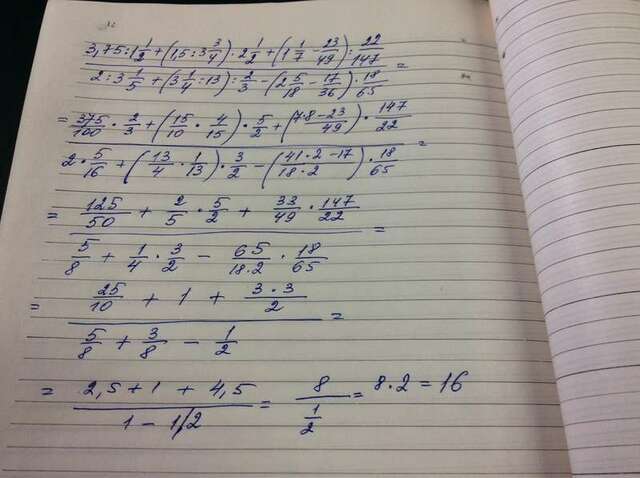 3,75:1 1/2 + (1,5:3 3/4) · 2 1/2 + (1 1/7 - 23/49) : 22/147
2:3 1/5 + (3 1/4 : 13) : 2/3 - (2 5/18 - 17/36) · 18/65 =
= 375/100 · 2/3 + (15/10 · 4/15) · 5/2 + (7·8-23/49) · 147/22
2 · 5/16 + (13/4 · 1/13) · 3/2 - (41·2-17/18·2) · 18/65 =
= 125/50 + 2/5 · 5/2 + 33/49 · 147/22
5/8 + 1/4 · 3/2 - 65/18·2 · 18/65 =
= 25/10 + 1 + 3·3/2
5/8 + 3/8 - 1/2 =
= 2,5+1+4,5 / 1-1/2 = 8 / 1/2 = 8·2=16